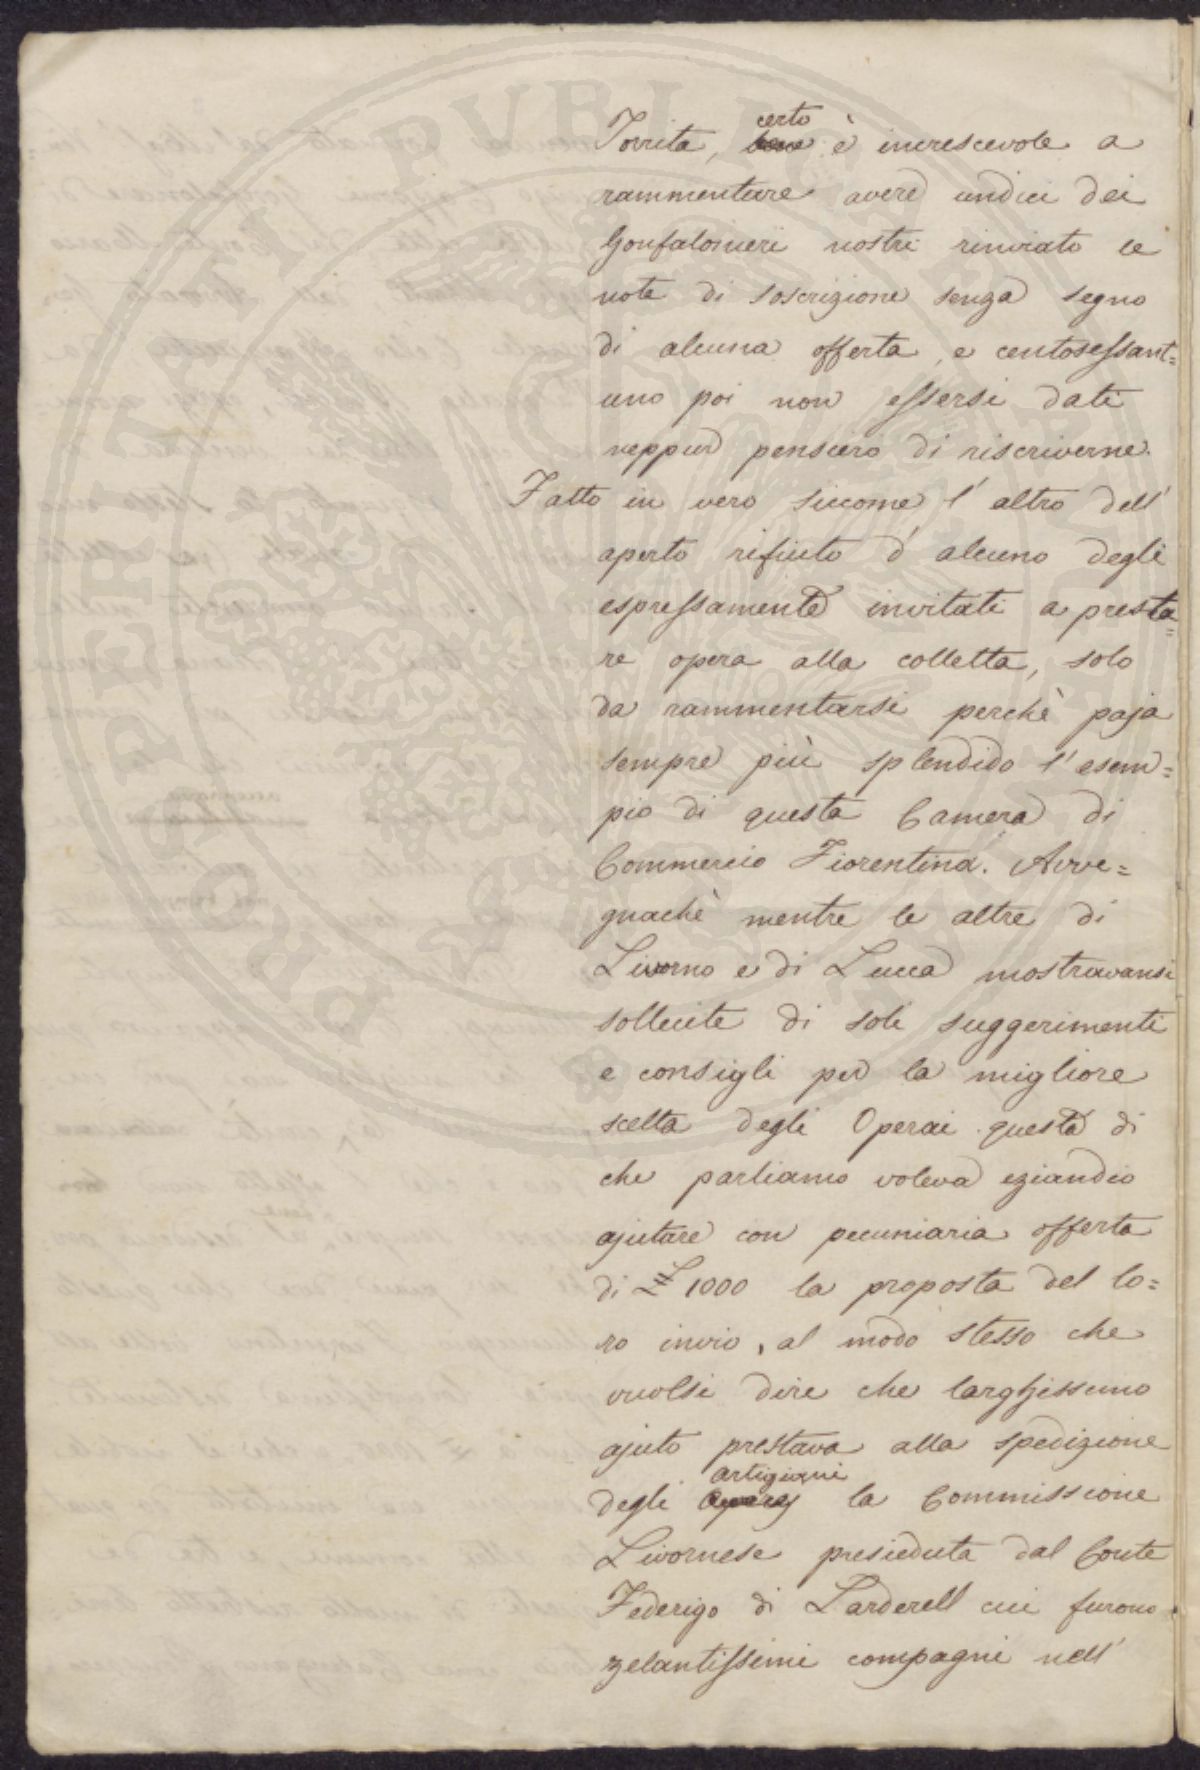 certo
Torrita, bene è increscevole a
rammentare avere undici dei
Gonfalonieri nostri rinviato le
note di soscrizione senza segno
di alcuna offerta, e centosessant=
uno poi non essersi dati
neppur pensiero di riscriverne.
Fatto in vero siccome l'altro dell'
aperto rifiuto d'alcuno degli
espressamente invitati a presta=
re opera alla colletta, solo
da rammentarsi perchè paja
sempre più splendido l'esem=
pio di questa Camera di
Commercio Fiorentina. Avve=
gnachè mentre le altre di
Livorno e di Lucca mostravansi
sollecite di soli suggerimenti
e consigli per la migliore
scelta degli Operai questa di
che parliamo voleva eziandio
ajutare con pecuniaria offerta
di £ 1000 la proposta del lo=
ro invio, al modo stesso che
vuolsi dire che larghissimo
ajuto prestava alla spedizione
artigiani
degli la Commissione
Livornese presieduta dal Conte
Federigo di Larderell cui furono
zelantissimi compagni nell'
PROSPERITATI PVBLICAE